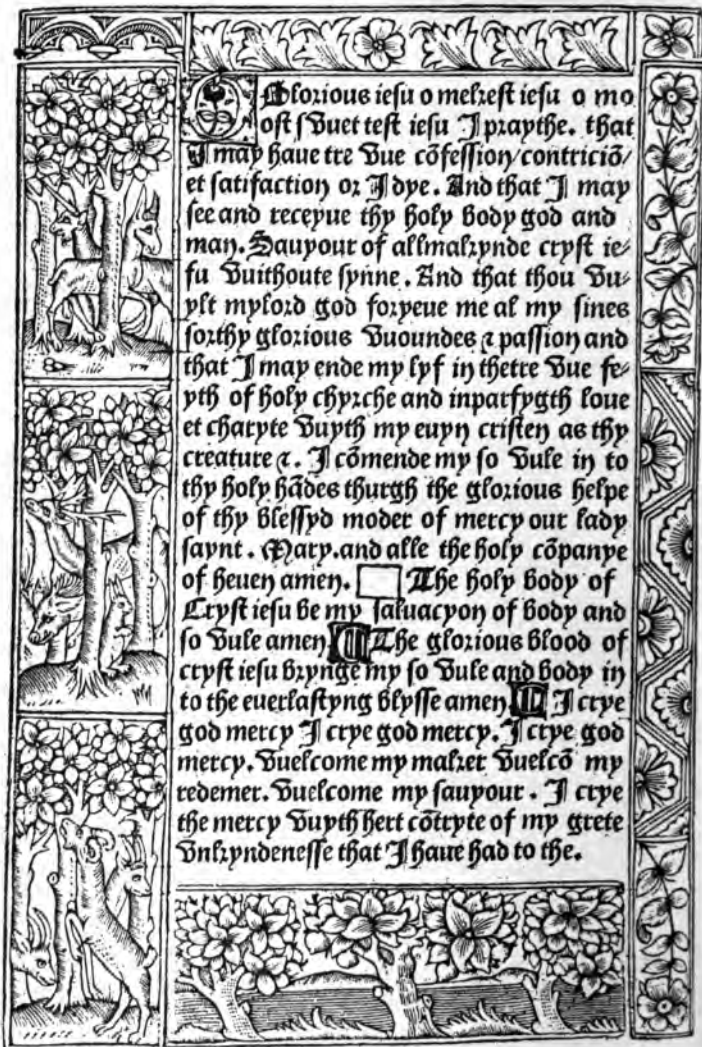 O Glorious iesu o mekest iesu o mo
ost sVuet test iesu I praythe. that
I may haue tre Vue cōfession/contriciō/
et satifaction or I dye. And that I may
see and receyue thy holy body god and
man. Sauyour of allmakynde cryst ie⸗
su Vuithoute synne. And that thou Vu⸗
ylt mylord god foryeue me al my sines
forthy glorious Vuoundes ⁊ passion and
that I may ende my lyf in thetre Vue fe⸗
yth of holy chyrche and inparfygth loue
et charyte Vuyth my euyn cristen as thy
creature ⁊. I cōmende my so Vule in to
thy holy hādes thurgh the glorious helpe
of thy blessyd moder of mercy our lady
saynt. Mary. and alle the holy cōpanye
of heuen amen. The holy body of
Cryst iesu be my saluacyon of body and
so Vule amen The glorious blood of
cryst iesu brynge my so Vule and body in
to the euerlastyng blysse amen I crye
god mercy I crye god mercy. I crye god
mercy. Vuelcome my maker Vuelcō my
redemer. Vuelcome my sauyour. I crye
the mercy Vuyth hert cōtryte of my grete
Vnkyndenesse that I haue had to the.